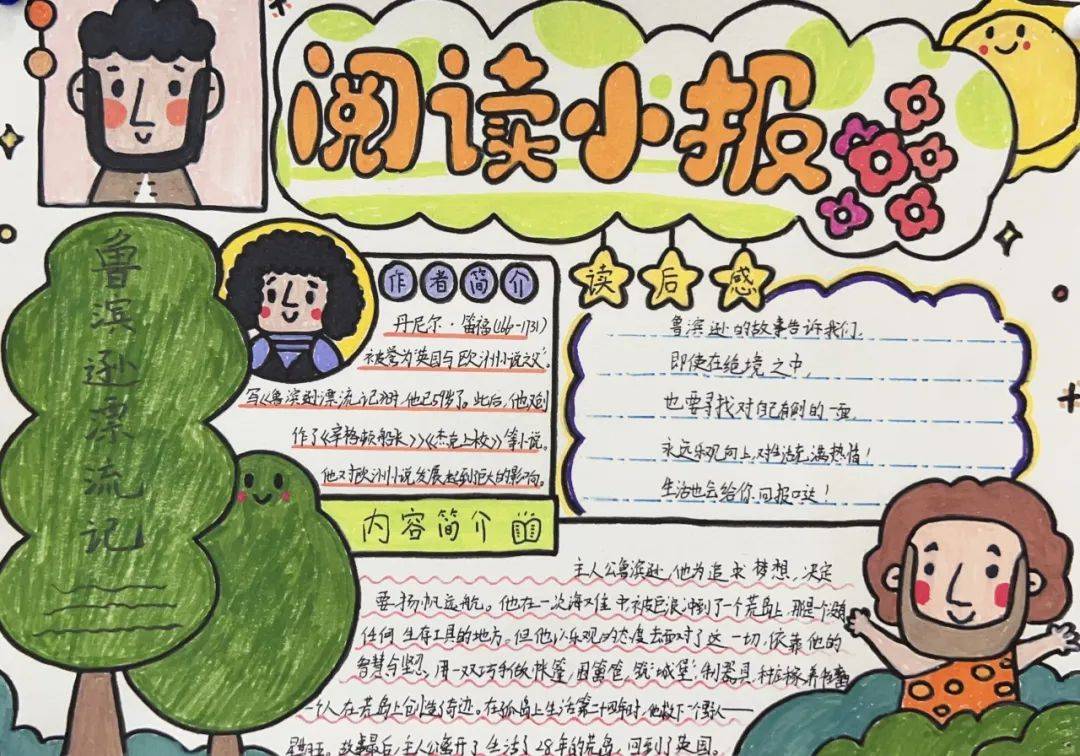 阅读小报
鲁滨逊漂流记
作者简介
丹尼尔·笛福(166-1731)
被誉为"英国与欧洲小说之父"。
写《鲁滨逊漂流记》时,他已59岁了。此后,他又创
作了《辛格顿船长》《杰克上校》等小说。
他对欧洲小说发展起到巨大的影响。
读后感
鲁滨逊的故事告诉我们:
即使在绝境之中,
也要寻找对自己有利的一面,
永远乐观向上,对生活充满热情!
生活也会给你回报哒!
内容简介
主人公鲁滨逊,他为追求梦想,决定
要扬帆远航。他在一次海难中被巨浪冲到了一个荒岛上,那是一个没有
任何生存工具的地方。但他以乐观的态度去面对了这一切,依靠他的
智慧与坚忍,用一双巧手做帐篷,围篱笆,筑"城堡",制器具,
一个人在荒岛上创造奇迹。在孤岛上生活第二十四年时,他救下一个野人——
故事最后,主人公离开了生活了28年的荒岛,回到了英国。